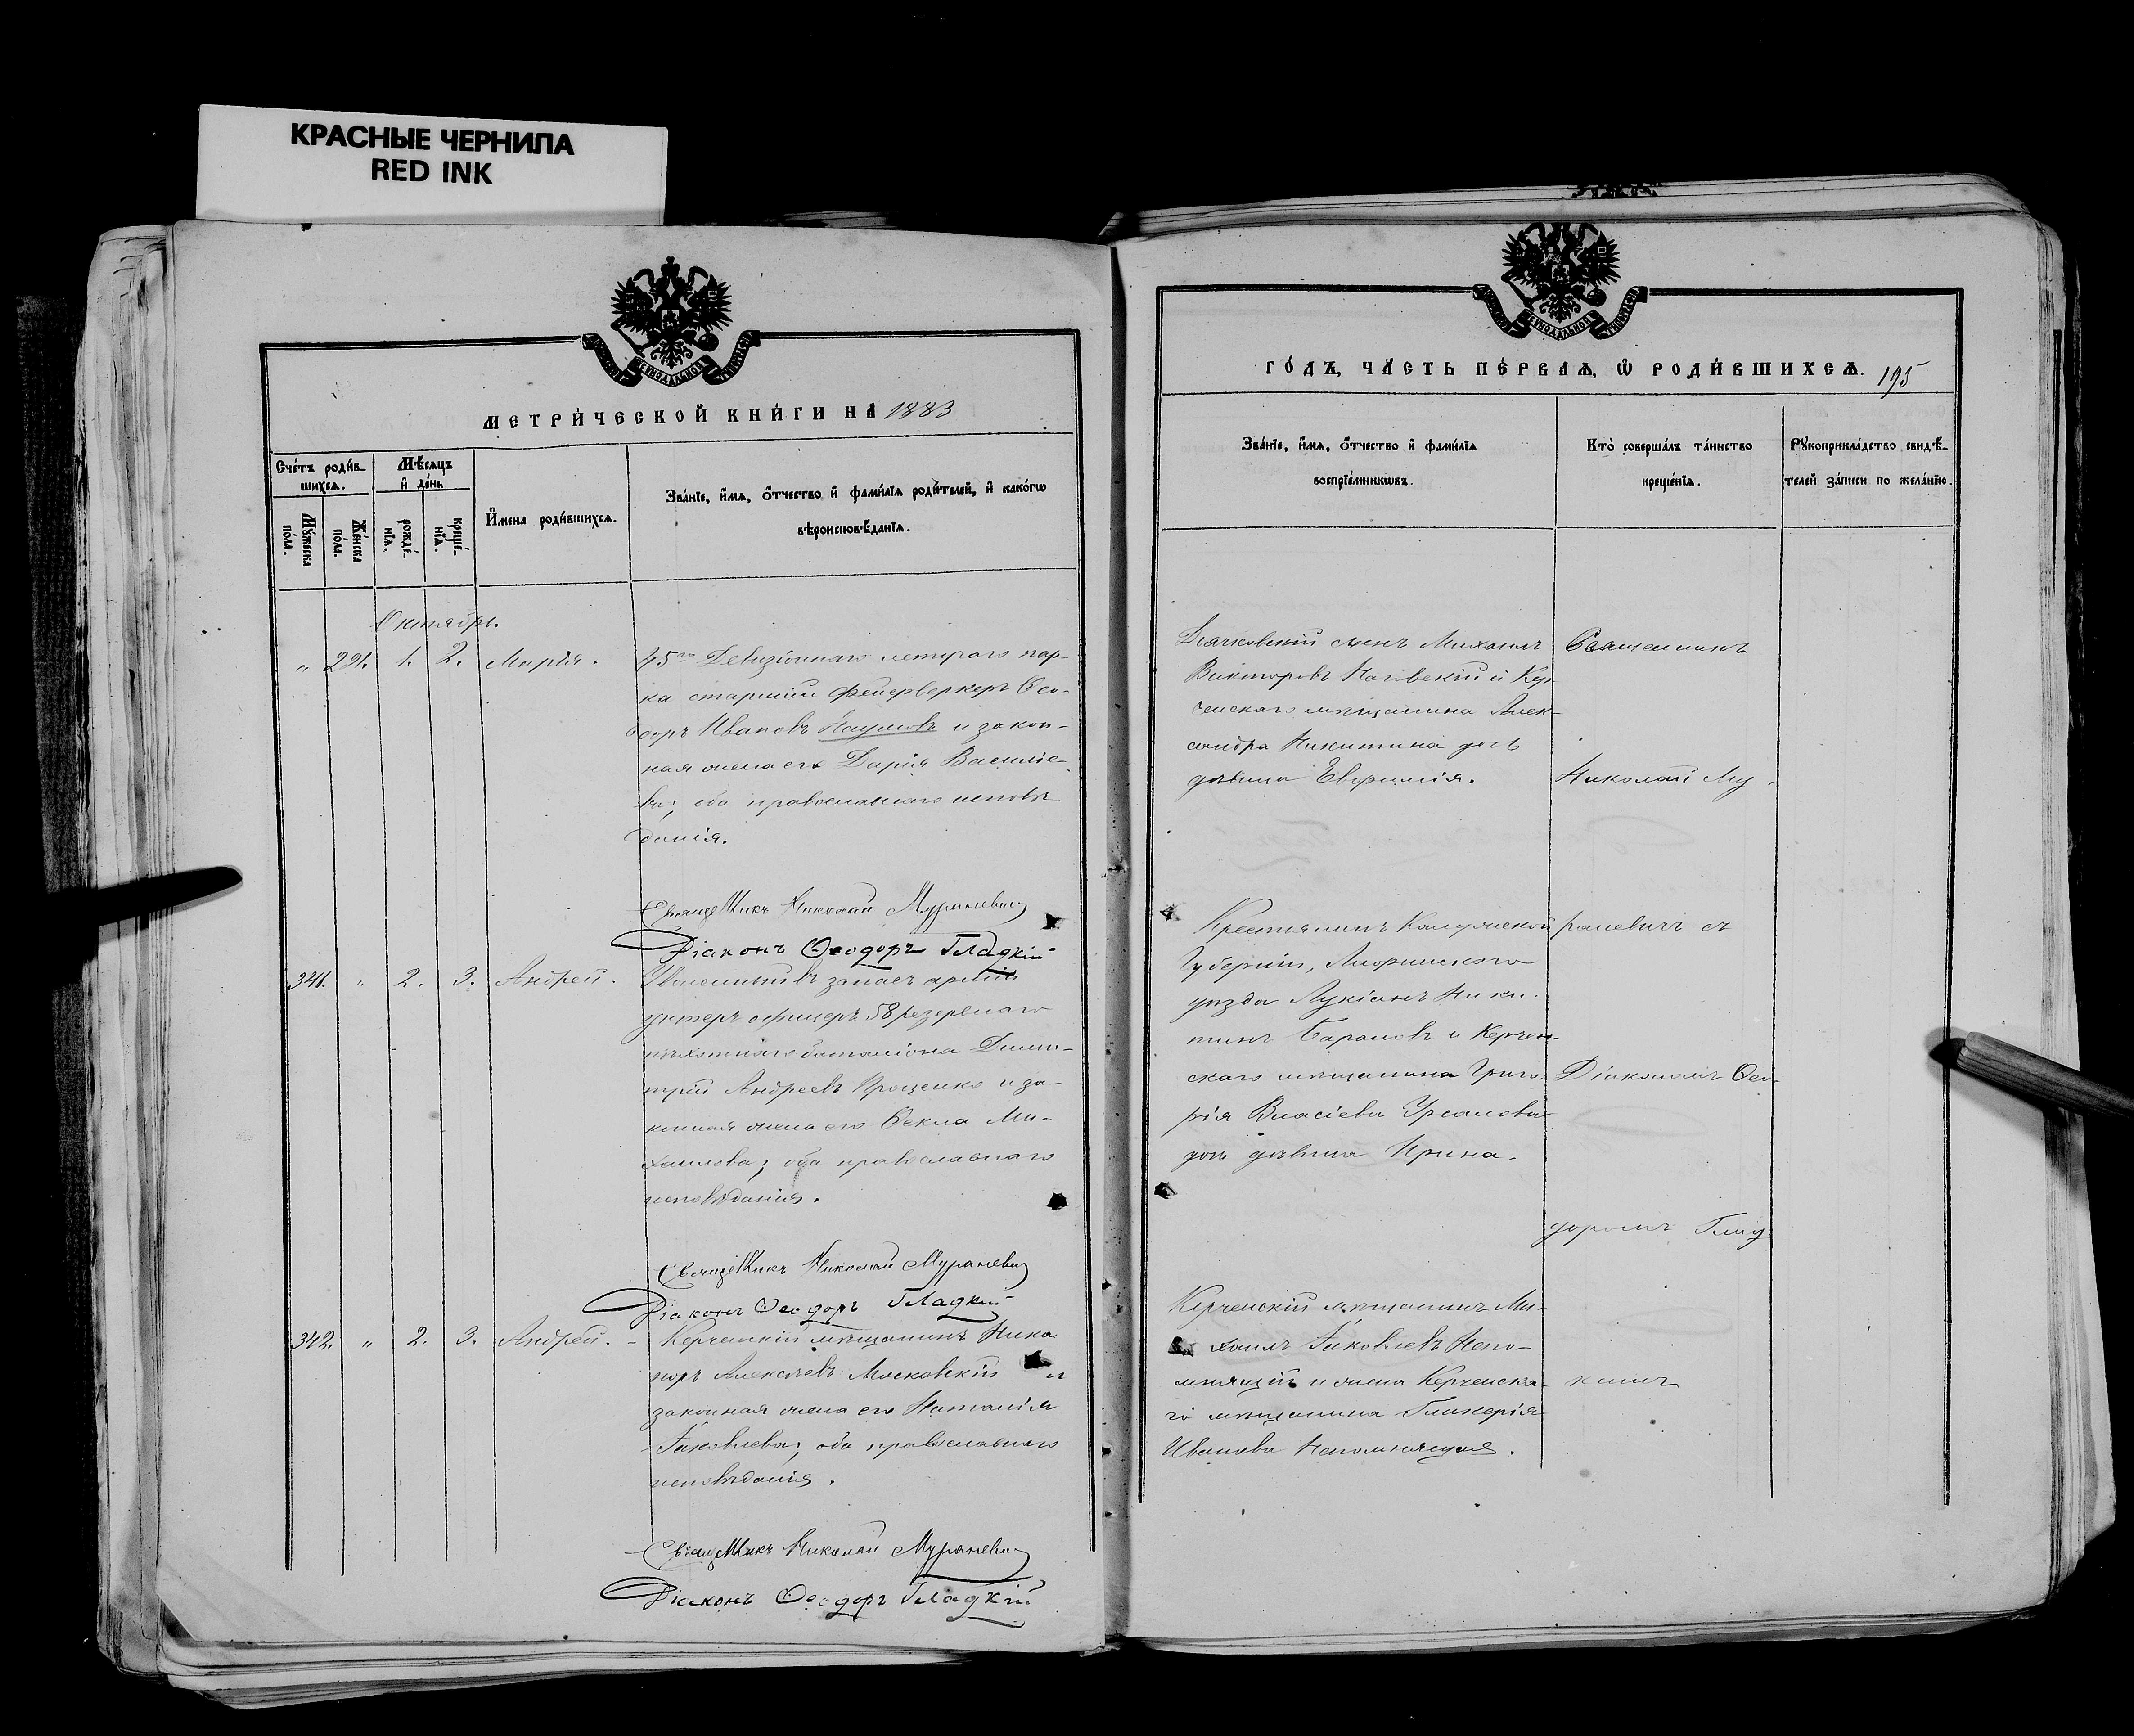 КРАСНЫЕ ЧЕРНИЛА
RED INK
МЕТРИЧЕСКОЙ КНИГИ НА 1883
Счетъ родив-
шихся.
Мѣсяцъ
и день
Мужеска
пола.
Женска
пола.
рожде-
нія.
креще-
нія.
Имена родившихся.
Званіе, имя, отчество и фамилія родителей, и какогω
вѣроисповѣданія.
Октябрь.
" 291. 1. 2. Марія.
45го летучаго пар-
ка старшій фейерверкеръ Ѳео-
доръ Ивановъ Наумовъ и закон-
ная жена его Дарія Василіе-
ва; оба православнаго исповѣ
данія.
Священникъ Николай Мураневич
Діаконъ Ѳеодоръ Гладкій
341. " 2. 3. Андрей.
Уволенный въ запасъ арміи
унтеръ офицеръ 58 резервнаго
пѣхотнаго баталіона Дими-
трій Андреевъ Проценко и за-
конная жена его Ѳекла Ми-
хаилова; оба православнаго
исповѣданія.
Священникъ Николай Мураневич
Діаконъ Ѳеодоръ Гладкій
342. " 2. 3. Андрей.
Керченскій мѣщанинъ Ника
норъ Алексѣевъ Московскій и
законная жена его Наталія
Іаковлева; оба православнаго
исповѣданія.
Священникъ Николай Мураневич
Діаконъ Ѳеодоръ Гладкій
ГОДЪ, ЧАСТЬ ПЕРВАЯ, Ѡ РОДИВШИХСЯ. 195
Званіе, имя, отчество и фамилія
воспріемникωвъ.
Кто совершалъ таинство
крещенія.
Рукоприкладство свидѣ-
телей записи по желанію.
сынъ Михаилъ
Викторовъ и Кер
ченскаго мѣщанина Алек-
сандра Никитина дочь
дѣвица Евфимія.
Священникъ
Николай Му
Крестьянинъ Калужской
Губерніи,
уѣзда Лукіанъ Ники-
тинъ Барановъ и Керчен-
скаго мѣщанина Григо-
рія Власіева
дочь дѣвица Ирина.
раневичъ съ
Діакономъ Ѳео-
доромъ Глад
Керченскій мѣщанинъ Ми-
хаилъ Іаковлевъ Непо-
мнящій и жена Керченска-
го мѣщанина Гликерія
Иванова Непомнящая.
кимъ